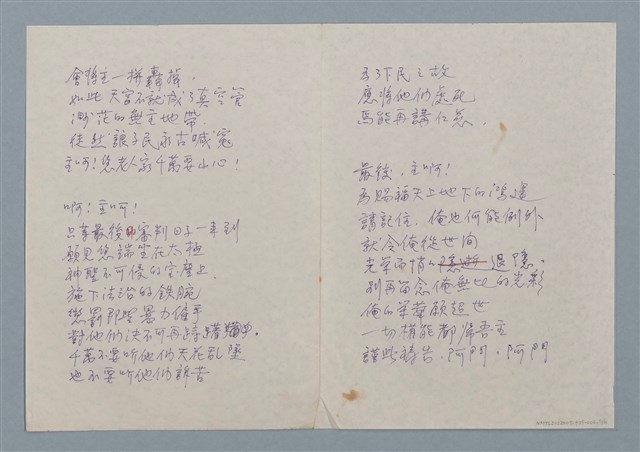 會將主一拼轟掉，
如此天宮不就成了真空管
渺茫的無主地帶
徒然讓子民永古喊冤
主啊！您老人家千萬要小心！
啊！主啊！
只等最後審判日子一來到
願見您端坐在太極
神聖不可侵的宝座上
施下法治的鉄腕
懲罰那些暴力催手
對他們決不可再躊躇
千萬不要听他們天花乱墜
也不要听他們訴苦
為了下民之故
應將他們處死
焉能再講仁慈。
最後，主啊！
為賜福天上地下的鴻運
請記住，俺也何能例外
就令俺從世间
光榮而悄然退隱。
別再留念俺無比的光彩
俺的榮華願超世
一切權能都歸吾主
謹此禱告，阿門，阿門